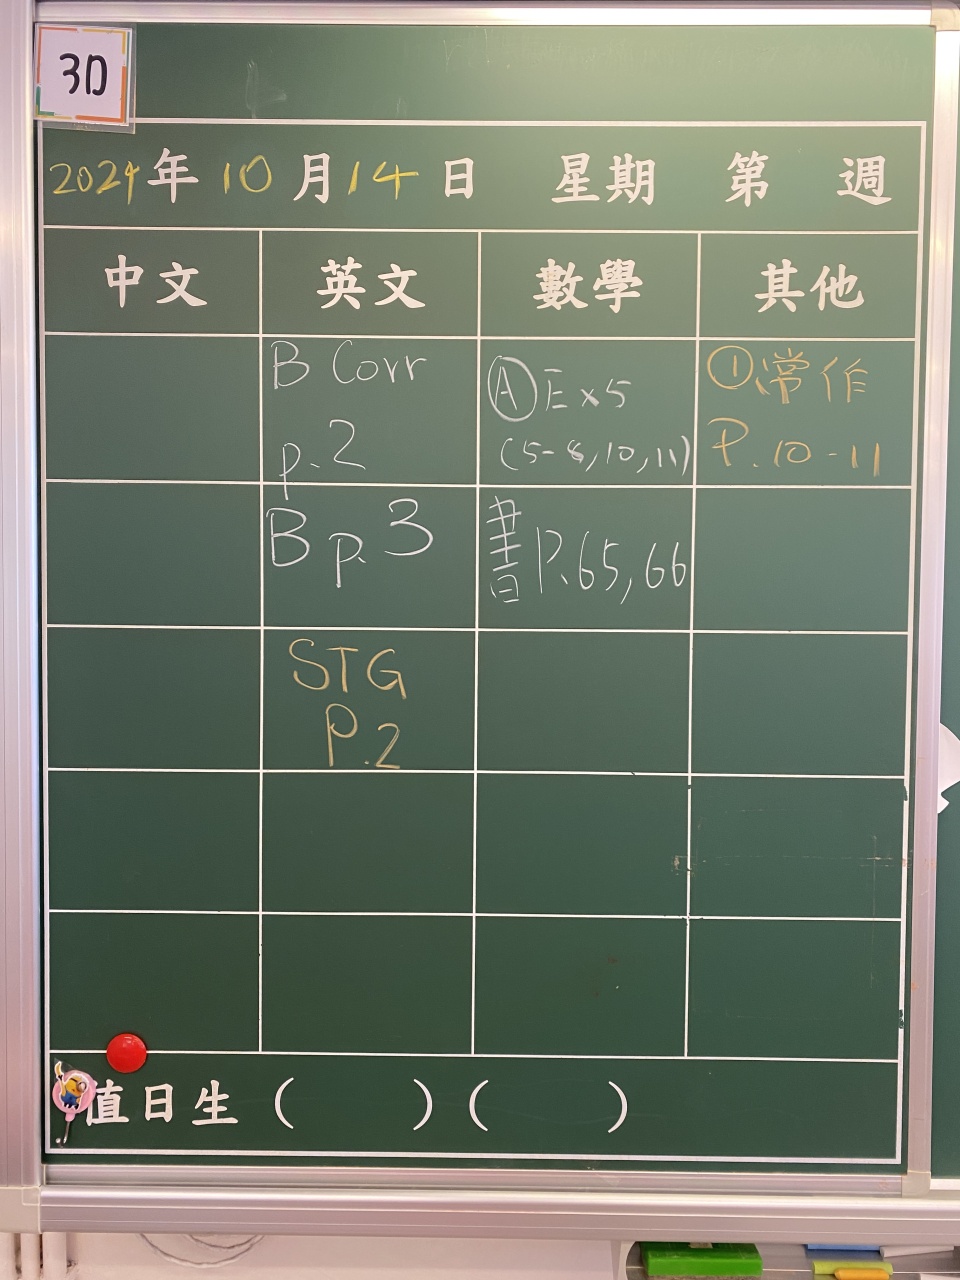 3D
2024年 10月14日 星期 第 週
中文 英文 數學 其他
B Corr
p.2
Ⓐ Ex5
(5-8,10,11)
①常作
P.10-11
B p.3
書P.65,66
STG
P.2
值日生 ( ) ( )